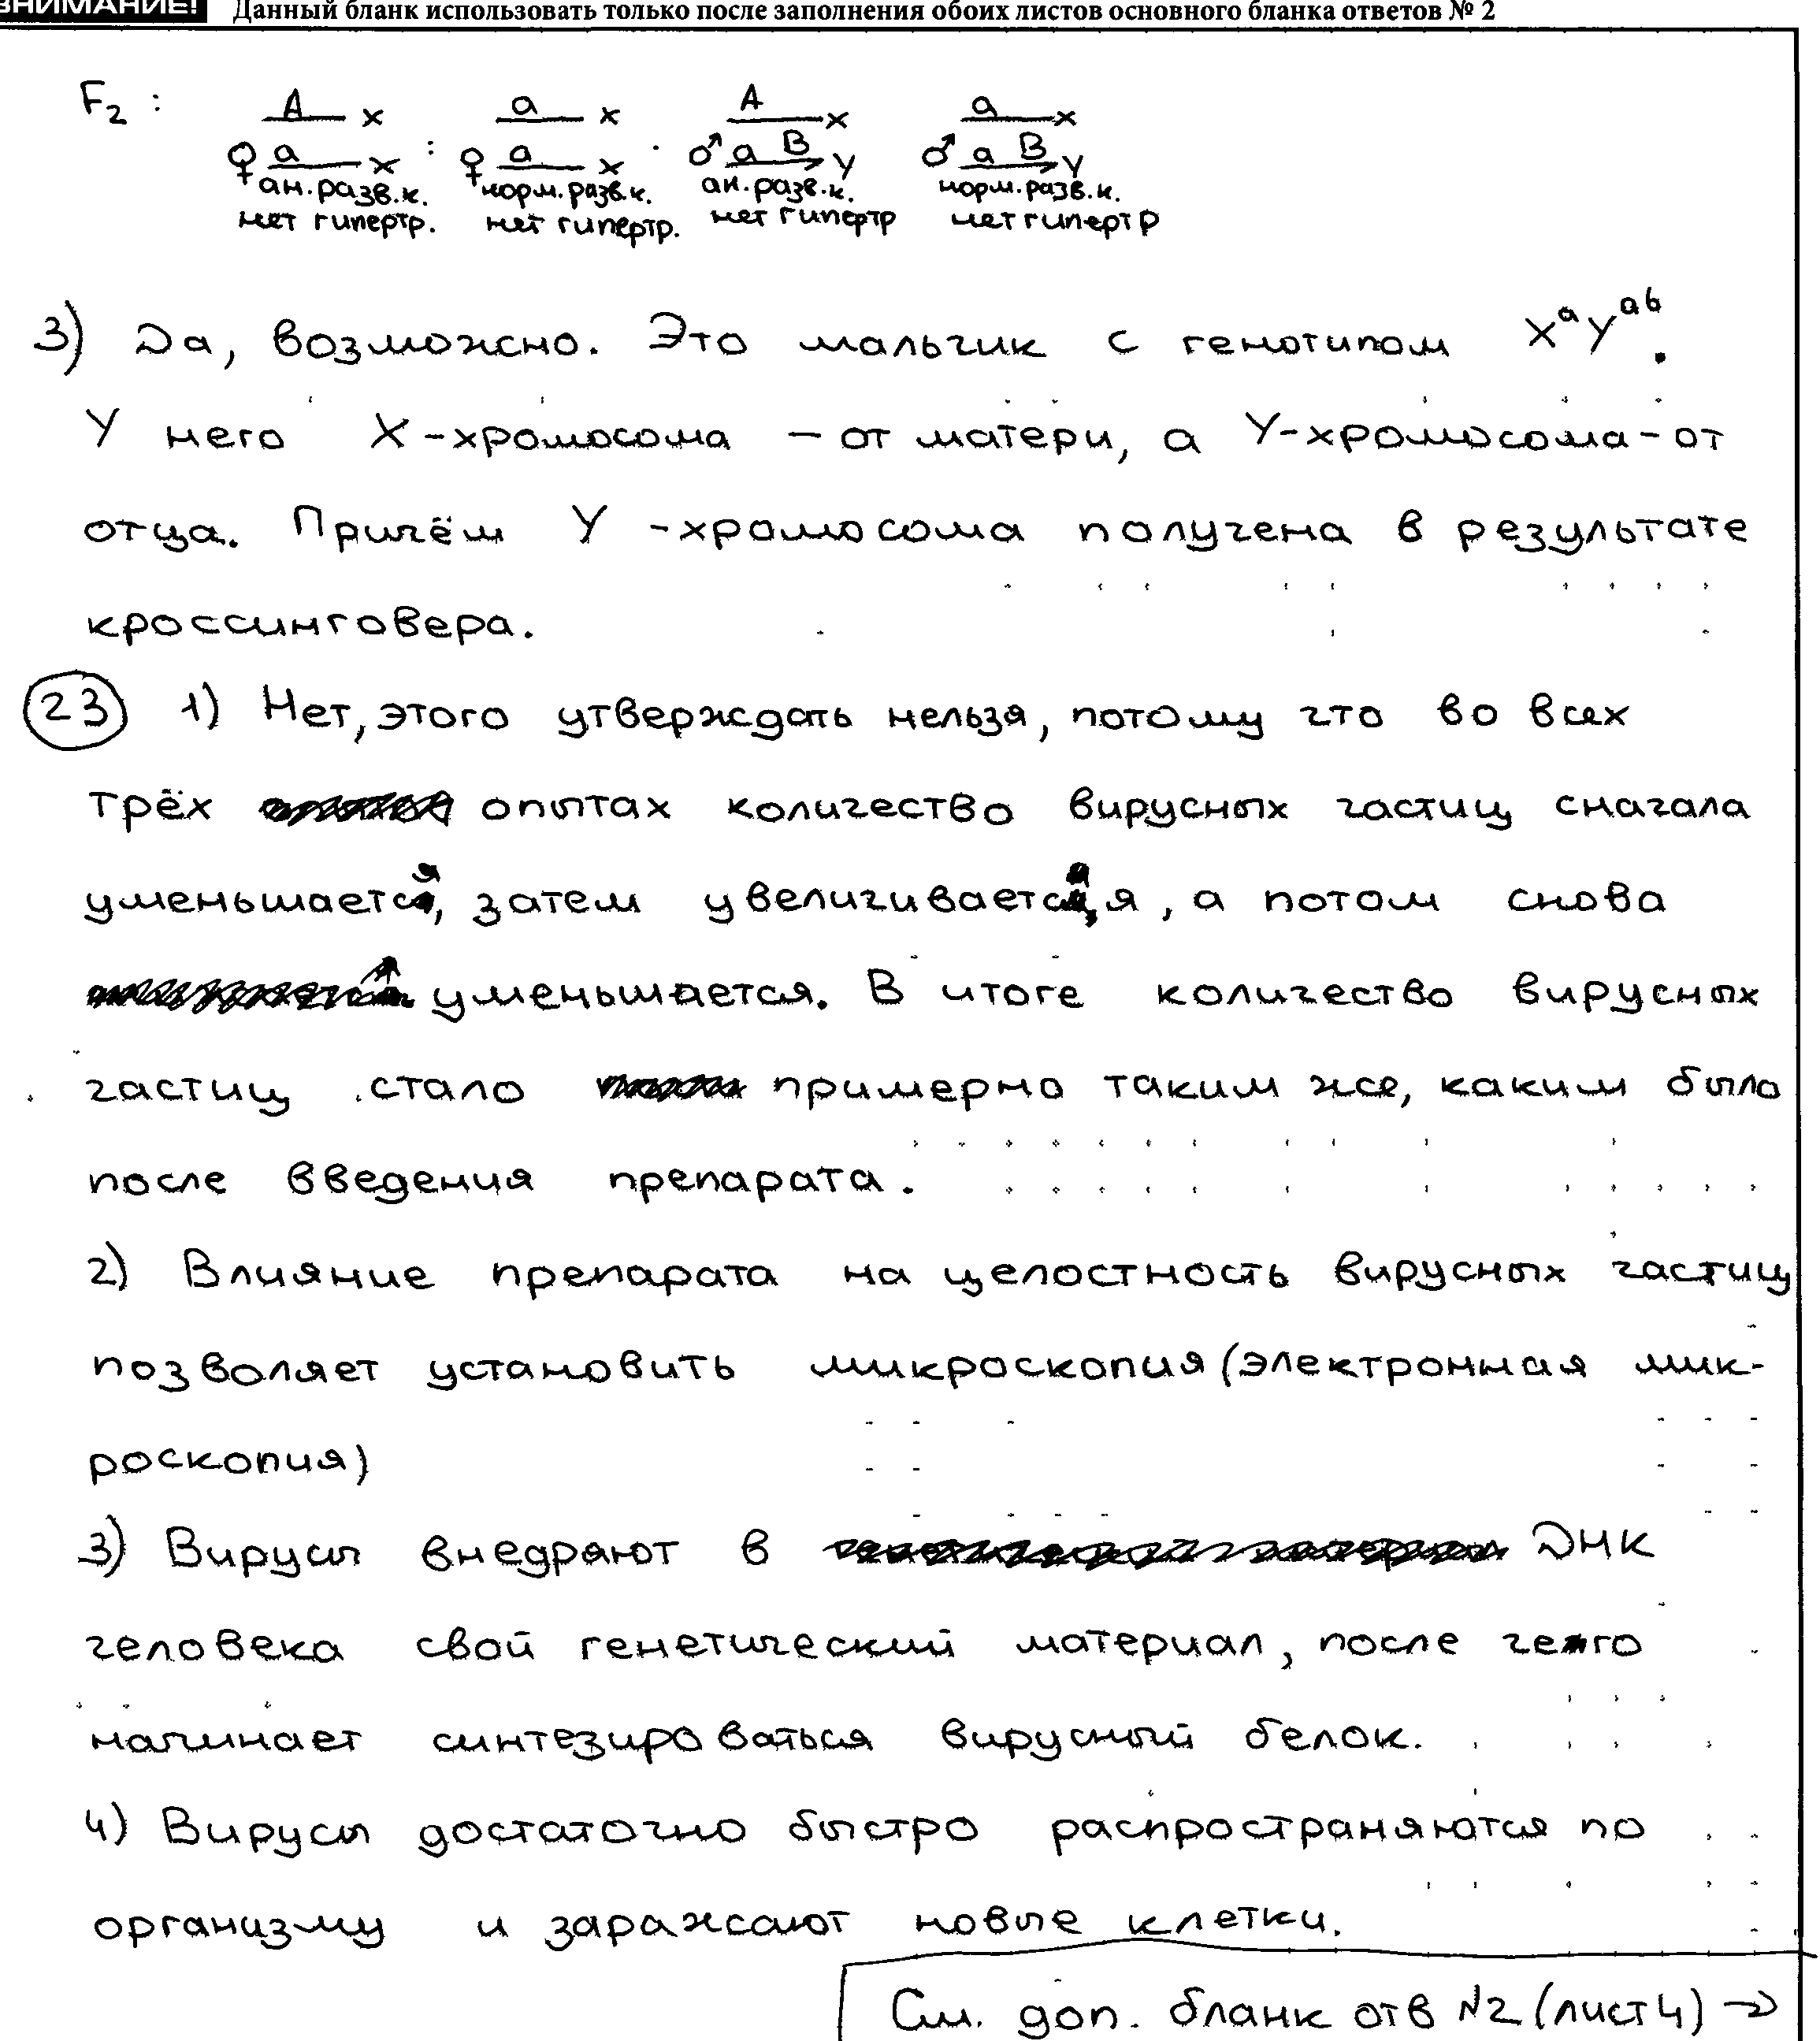 ВНИМАНИЕ! Данный бланк использовать только после заполнения обоих листов основного бланка ответов № 2
F₂ : A x a x A x a x
♀ a x : ♀ a x . ♂ a B y ♂ a B y
ан.разв.к. норм.разв.к. ан.разв.к. норм.разв.к.
нет гипертр. нет гипертр. нет гипертр нет гипертр
3) Да, возможно. Это мальчик с генотипом XᵃYᵃᵇ.
У него X-хромосома – от матери, а Y-хромосома – от
отца. Причём Y-хромосома получена в результате
кроссинговера.
23 1) Нет, этого утверждать нельзя, потому что во всех
трёх опытах количество вирусных частиц сначала
уменьшается, затем увеличивается, а потом снова
уменьшается. В итоге количество вирусных
частиц стало примерно таким же, каким было
после введения препарата.
2) Влияние препарата на целостность вирусных частиц
позволяет установить микроскопия (электронная мик-
роскопия)
3) Вирусы внедряют в ДНК
человека свой генетический материал, после чего
начинает синтезироваться вирусный белок.
4) Вирусы достаточно быстро распространяются по
организму и заражают новые клетки.
См. доп. бланк отв №2 (лист 4) →